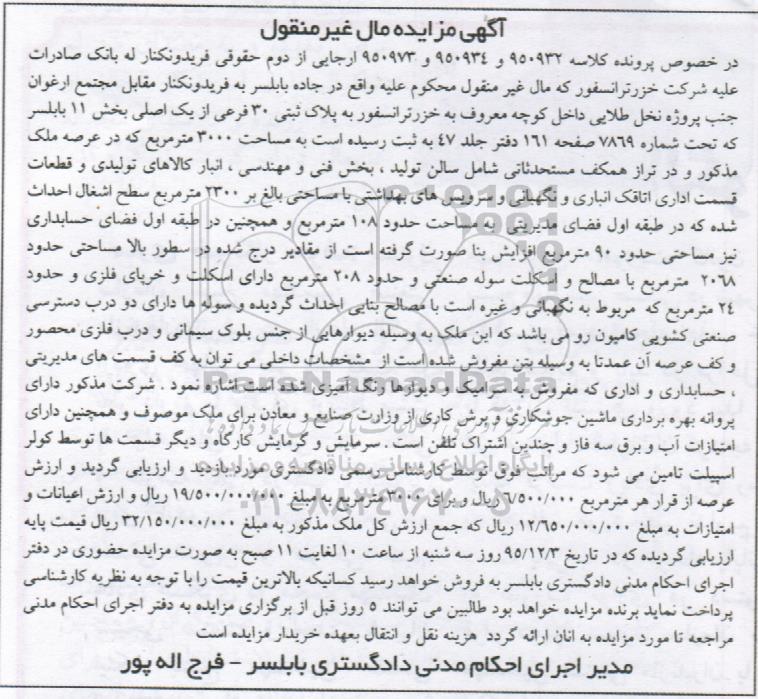 آگهی مزایده مال غیرمنقول
در خصوص پرونده کلاسه ۹۵۰۹۳۲ و ۹۵۰۹۳۴ و ۹۵۰۹۷۳ ارجایی از دوم حقوقی فریدونکنار له بانک صادرات
علیه شرکت خزرترانسفور که مال غیر منقول محکوم علیه واقع در جاده بابلسر به فریدونکنار مقابل مجتمع ارغوان
جنب پروژه نخل طلایی داخل کوچه معروف به خزرترانسفور به پلاک ثبتی ۳۰ فرعی از یک اصلی بخش ۱۱ بابلسر
که تحت شماره ۷۸۶۹ صفحه ۱۶۱ دفتر جلد ۴۷ به ثبت رسیده است به مساحت ۳۰۰۰ مترمربع که در عرصه ملک
مذکور و در تراز همکف مستحدثاتی شامل سالن تولید ، بخش فنی و مهندسی ، انبار کالاهای تولیدی و قطعات
قسمت اداری اتاقک انباری و نگهبانی و سرویس های بهداشتی با مساحتی بالغ بر ۲۳۰۰ مترمربع سطح اشغال احداث
شده که در طبقه اول فضای مدیریتی به مساحت حدود ۱۰۸ مترمربع و همچنین در طبقه اول فضای حسابداری
نیز مساحتی حدود ۹۰ مترمربع افزایش بنا صورت گرفته است از مقادیر درج شده در سطور بالا مساحتی حدود
۲۰۶۸ مترمربع با مصالح و اسکلت سوله صنعتی و حدود ۲۰۸ مترمربع دارای اسکلت و خرپای فلزی و حدود
۲۴ مترمربع که مربوط به نگهبانی و غیره است با مصالح بنایی احداث گردیده و سوله ها دارای دو درب دسترسی
صنعتی کشویی کامیون رو می باشد که این ملک به وسیله دیوارهایی از جنس بلوک سیمانی و درب فلزی محصور
و کف عرصه آن عمدتا به وسیله بتن مفروش شده است از مشخصات داخلی می توان به کف قسمت های مدیریتی
، حسابداری و اداری که مفروش به سرامیک و دیوارها رنگ آمیزی شده است اشاره نمود . شرکت مذکور دارای
پروانه بهره برداری ماشین جوشکاری و برش کاری از وزارت صنایع و معادن برای ملک موصوف و همچنین دارای
امتیازات آب و برق سه فاز و چندین اشتراک تلفن است . سرمایش و گرمایش کارگاه و دیگر قسمت ها توسط کولر
اسپیلت تامین می شود که مراتب فوق توسط کارشناس رسمی دادگستری مورد بازدید و ارزیابی گردید و ارزش
عرصه از قرار هر مترمربع ۶/۵۰۰/۰۰۰ ریال و برای ۳۰۰۰ مترمربع به مبلغ ۱۹/۵۰۰/۰۰۰/۰۰۰ ریال و ارزش اعیانات و
امتیازات به مبلغ ۱۲/۶۵۰/۰۰۰/۰۰۰ ریال که جمع ارزش کل ملک مذکور به مبلغ ۳۲/۱۵۰/۰۰۰/۰۰۰ ریال قیمت پایه
ارزیابی گردیده که در تاریخ ۹۵/۱۲/۳ روز سه شنبه از ساعت ۱۰ لغایت ۱۱ صبح به صورت مزایده حضوری در دفتر
اجرای احکام مدنی دادگستری بابلسر به فروش خواهد رسید کسانیکه بالاترین قیمت را با توجه به نظریه کارشناسی
پرداخت نماید برنده مزایده خواهد بود طالبین می توانند ۵ روز قبل از برگزاری مزایده به دفتر اجرای احکام مدنی
مراجعه تا مورد مزایده به انان ارائه گردد هزینه نقل و انتقال بعهده خریدار مزایده است
مدیر اجرای احکام مدنی دادگستری بابلسر - فرج اله پور